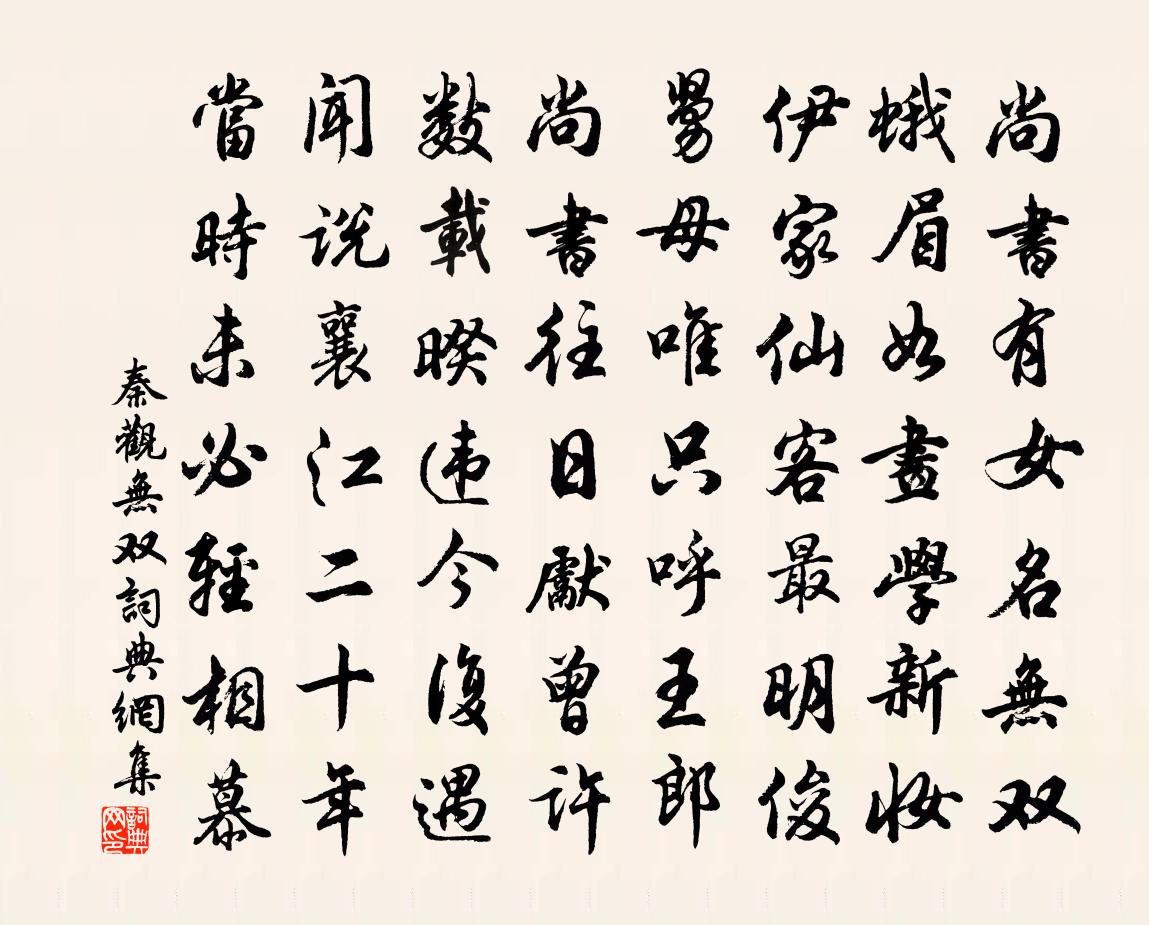 尚書有女名無双
蛾眉如畫學新妝
伊家仙客最明俊
舅母唯只呼王郎
尚書往日獻曾許
數載暌违今復遇
聞说襄江二十年
當時未必輕相慕
秦觀無双詞典網集
詞典網印